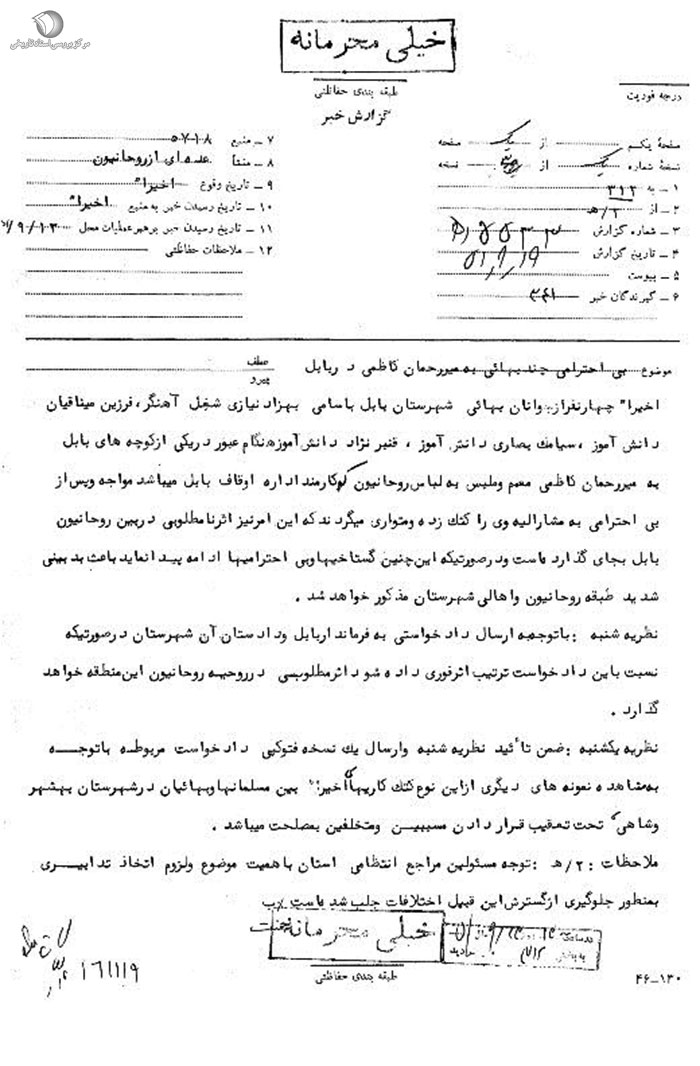 مرکز بررسی اسناد تاریخی
خیلی محرمانه
طبقه بندی حفاظتی
گزارش خبر
درجه فوریت
صفحهٔ یکم یک از یک صفحه
نسخهٔ شماره یک از نسخه
۱ – به ۳۱۲
۲ – از ۲/ه‍
۳ – شماره گزارش
۴ – تاریخ گزارش
۵ – پیوست
۶ – گیرندگان خبر ۳۴۱
۷ – منبع ۵۷۱۸
۸ – منشأ عده ای از روحانیون
۹ – تاریخ وقوع اخیرا"
۱۰ – تاریخ رسیدن خبر به منبع اخیرا"
۱۱ – تاریخ رسیدن خبر برهبر عملیات محل ۹/۱۳/
۱۲ – ملاحظات حفاظتی
موضوع بی احترامی چند بهائی به میررحمان کاظمی در بابل
عطف
پیرو
اخیرا" چهارنفر از جوانان بهائی شهرستان بابل باسامی بهزاد نیازی شغل آهنگر، فرزین میثاقیان
دانش آموز، سیامک بصاری دانش آموز، قنبر نژاد دانش آموز هنگام عبور در یکی از کوچه های بابل
به میررحمان کاظمی معمم و ملبس به لباس روحانیون که کارمند اداره اوقاف بابل میباشد مواجه و پس از
بی احترامی به مشارالیه وی را کتک زده و متواری میگردند که این امر نیز اثر نامطلوبی در بین روحانیون
بابل بجای گذارده است و در صورتیکه این چنین گستاخیها و بی احترامیها ادامه پیدا نماید باعث بدبینی
شدید طبقه روحانیون و اهالی شهرستان مذکور خواهد شد.
نظریه شنبه : باتوجه به ارسال دادخواستی به فرماندار بابل و دادستان آن شهرستان در صورتیکه
نسبت باین دادخواست ترتیب اثر فوری داده شود اثر مطلوبی در روحیه روحانیون این منطقه خواهد
گذارد.
نظریه یکشنبه : ضمن تأئید نظریه شنبه و ارسال یک نسخه فتوکپی دادخواست مربوطه باتوجه
به مشاهده نمونه های دیگری از این نوع کتک کاریها که اخیرا" بین مسلمانها و بهائیان در شهرستان بهشهر
و شاهی تحت تعقیب قرار دادن مسببین و متخلفین بمصلحت میباشد.
ملاحظات : ۲/ه‍ : توجه مسئولین مراجع انتظامی استان باهمیت موضوع و لزوم اتخاذ تدابیری
بمنظور جلوگیری از گسترش این قبیل اختلافات جلب شده است.
خیلی محرمانه
طبقه بندی حفاظتی
۱۶۱۱۱۹
۴۶–۱۳۰